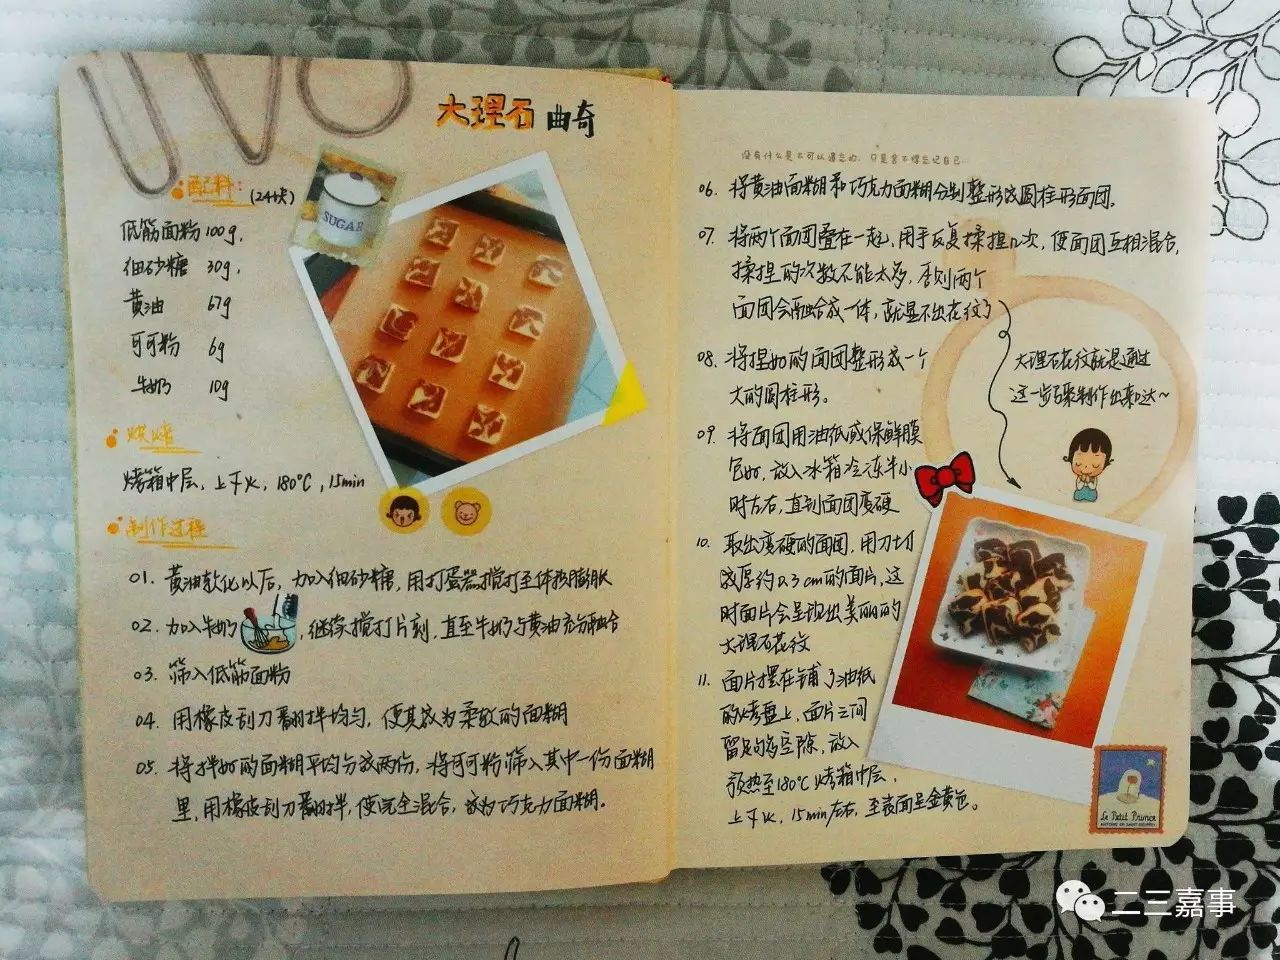 大理石曲奇
配料：(24块)
SUGAR
低筋面粉 100g，
细砂糖 30g，
黄油 67g
可可粉 6g
牛奶 10g
烘焙
烤箱中层，上下火，180℃，15min
制作过程
01. 黄油软化以后，加入细砂糖，用打蛋器搅打至体积膨胀
02. 加入牛奶，继续搅打片刻，直至牛奶与黄油充分融合
03. 筛入低筋面粉
04. 用橡皮刮刀翻拌均匀，使其成为柔软的面糊
05. 将拌好的面糊平均分成两份，将可可粉筛入其中一份面糊
里，用橡皮刮刀翻拌，使完全混合，成为巧克力面糊。
没有什么是不可以遗忘的，只是舍不得忘记自己
06. 将黄油面糊和巧克力面糊分别整形成圆柱形面团。
07. 将两个面团叠在一起，用手反复揉捏几次，使面团互相混合，
揉捏的次数不能太多，否则两个
面团会融合成一体，就显不出花纹了
大理石花纹就是通过
这一步骤制作出来哒~
08. 将捏好的面团整形成一个
大的圆柱形。
09. 将面团用油纸或保鲜膜
包好，放入冰箱冷冻半小
时左右，直到面团变硬
10. 取出变硬的面团，用刀切
成厚约0.3cm的面片，这
时面片会呈现出美丽的
大理石花纹
11. 面片摆在铺了油纸
的烤盘上，面片之间
留足够空隙，放入
预热至180℃烤箱中层，
上下火，15min左右，至表面呈金黄色。
Le Petit Prince
二三嘉事